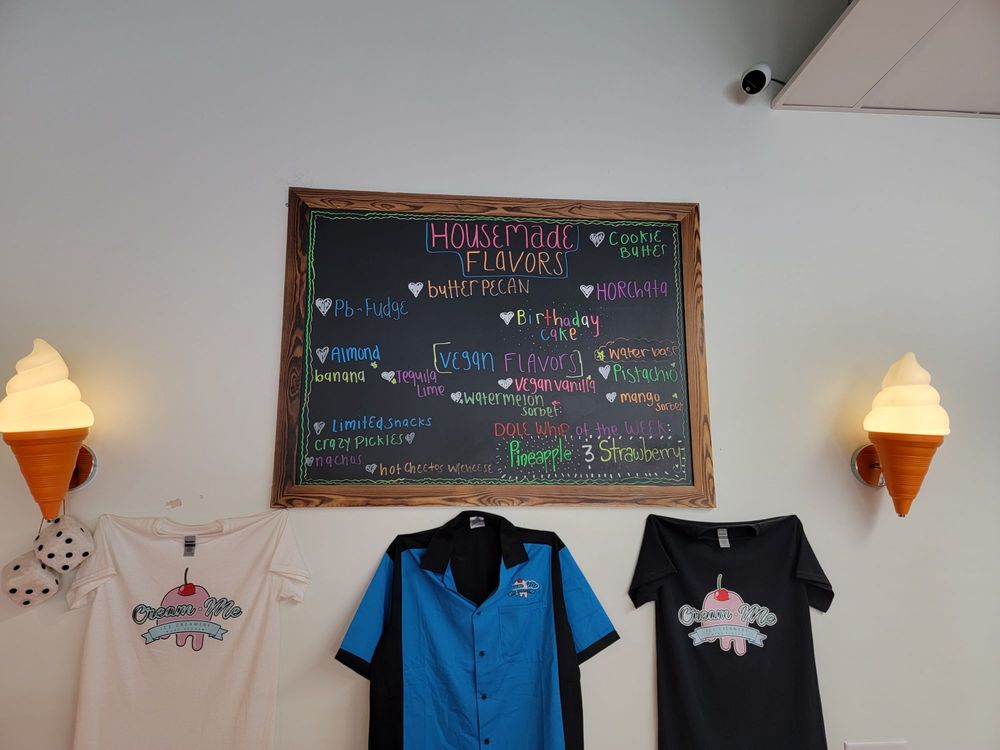 HOUSEMADE
FLAVORS
COOKIE
BUTTER
butter PECAN
HORCHATA
Pb-FUDGE
Birthaday
cake
[VEGAN FLAVORS]
Almond
banana
Tequila
Lime
Water base
Pistachio
vegan vanilla
Watermelon
sorbet
mango
sorbet
Limited snacks
crazy pickles
nachos
hot cheetos w/cheese
DOLE WHIP of the WEEK:
Pineapple & Strawberry
Cream-Me
ICE CREAMERY
Cream-Me
ICE CREAMERY